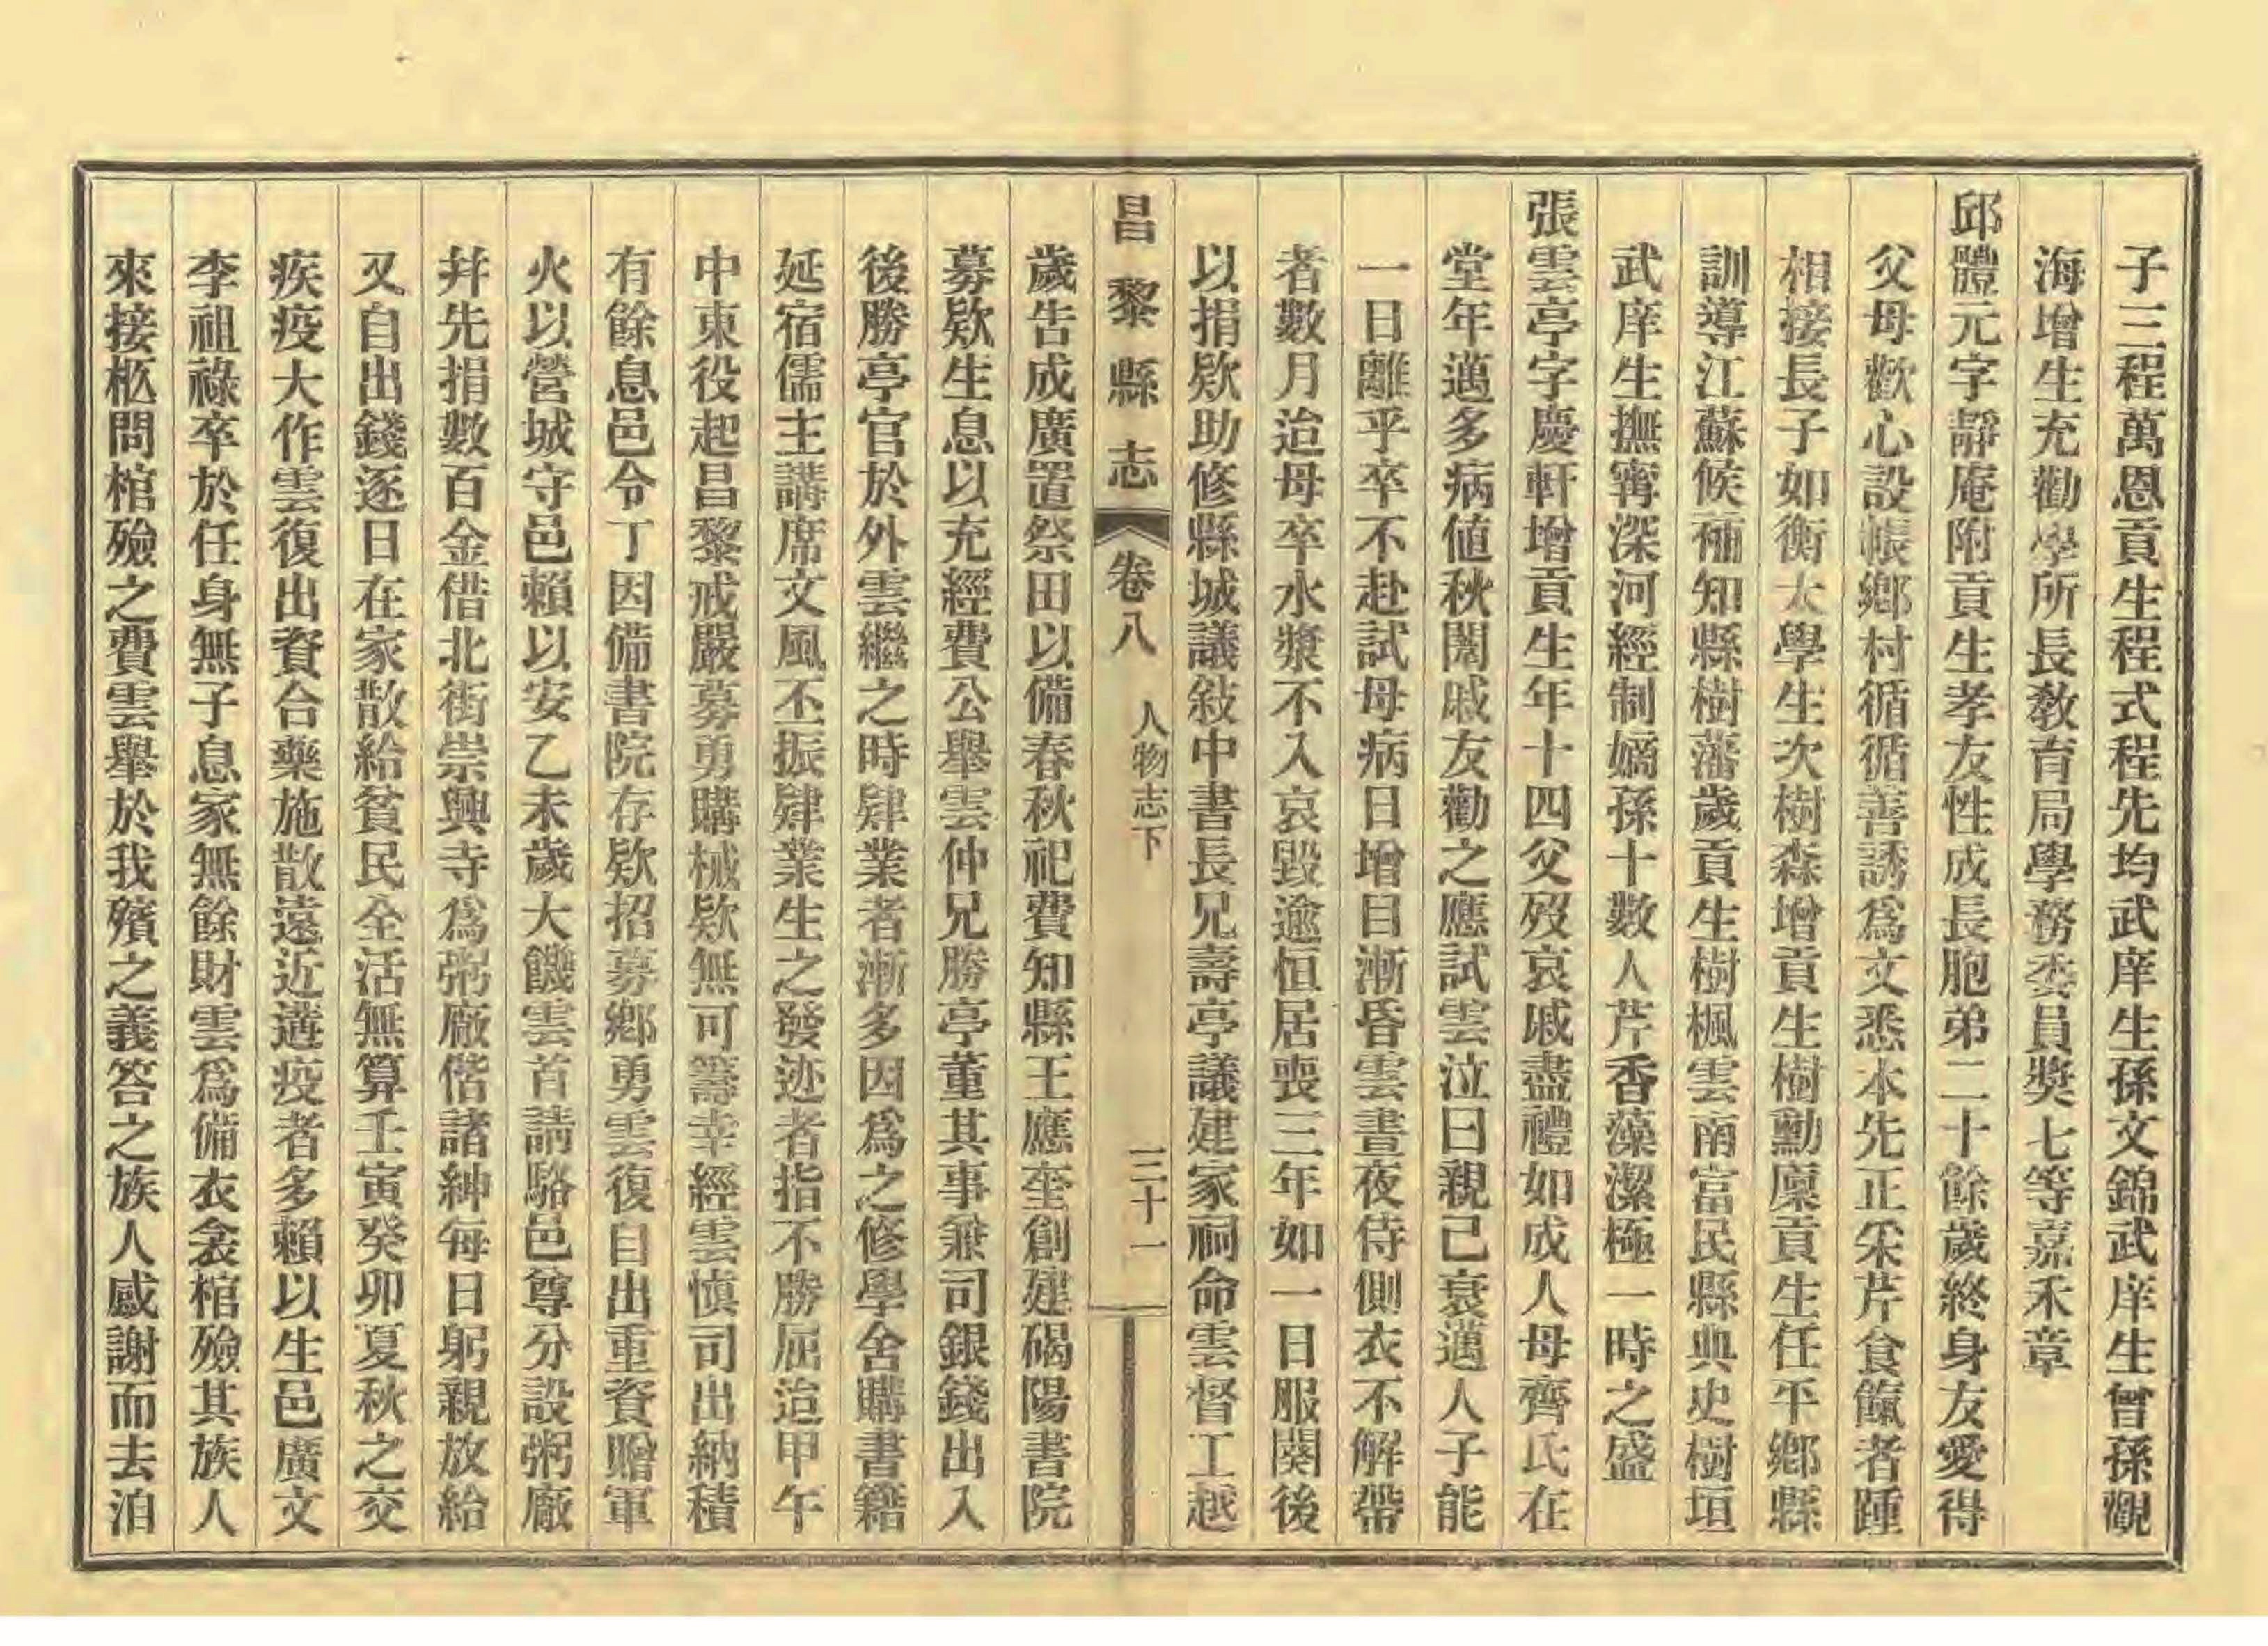 子三程萬恩貢生程式程先均武庠生孫文錦武庠生曾孫觀
海增生充勸學所長敎育局學務委員奬七等嘉禾章
邱體元字靜庵附貢生孝友性成長胞弟二十餘歲終身友愛得
父母歡心設帳鄉村循循善誘爲文悉本先正采芹食餼者踵
相接長子如衡太學生次樹森增貢生樹勳廩貢生任平鄉縣
訓導江蘇候補知縣樹藩歲貢生樹楓雲南富民縣典史樹垣
武庠生撫甯深河經制嫡孫十數人芹香藻潔極一時之盛
張雲亭字慶軒增貢生年十四父歿哀戚盡禮如成人母齊氏在
堂年邁多病値秋闈戚友勸之應試雲泣曰親已衰邁人子能
一日離乎卒不赴試母病日增目漸昏雲晝夜侍側衣不解帶
者數月迨母卒水漿不入哀毀逾恒居喪三年如一日服闋後
以捐欵助修縣城議敍中書長兄壽亭議建家祠命雲督工越
昌黎縣志 卷八 人物志下 三十一
歲告成廣置祭田以備春秋祀費知縣王應奎創建碣陽書院
募欵生息以充經費公舉雲仲兄勝亭董其事兼司銀錢出入
後勝亭官於外雲繼之時肄業者漸多因爲之修學舍購書籍
延宿儒主講席文風丕振肄業生之發迹者指不勝屈迨甲午
中東役起昌黎戒嚴募勇購械欵無可籌幸經雲愼司出納積
有餘息邑令丁因備書院存欵招募鄉勇雲復自出重資贍軍
火以營城守邑賴以安乙未歲大饑雲首請駱邑尊分設粥廠
幷先捐數百金借北街崇興寺爲粥廠偕諸紳每日躬親放給
又自出錢逐日在家散給貧民全活無算壬寅癸卯夏秋之交
疾疫大作雲復出資合藥施散遠近遘疫者多賴以生邑廣文
李祖祿卒於任身無子息家無餘財雲爲備衣衾棺殮其族人
來接柩問棺殮之費雲舉於我殯之義答之族人感謝而去洎